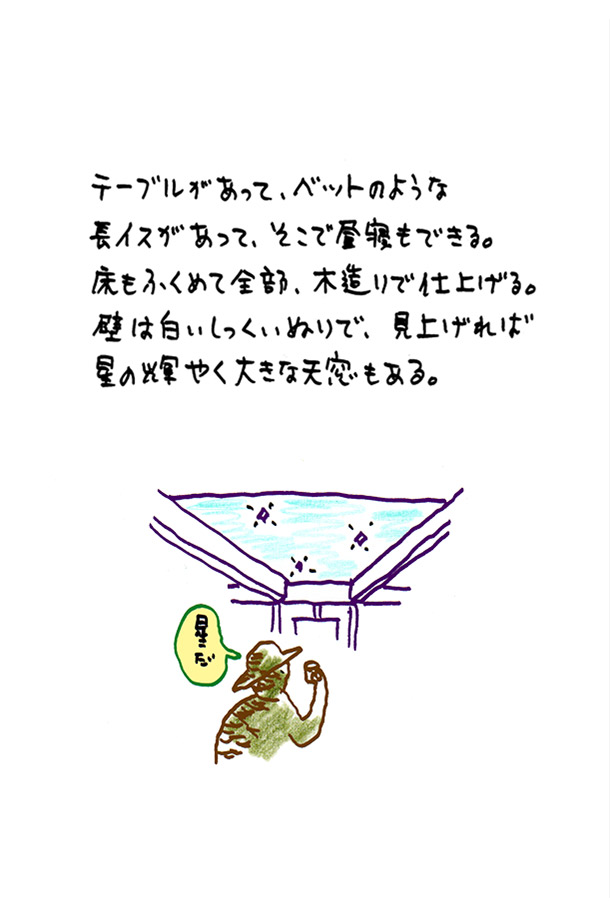 テーブルがあって、ベットのような
長イスがあって、そこで昼寝もできる。
床もふくめて全部、木造りで仕上げる。
壁は白いしっくいぬりで、見上げれば
星の輝やく大きな天窓もある。
星だ